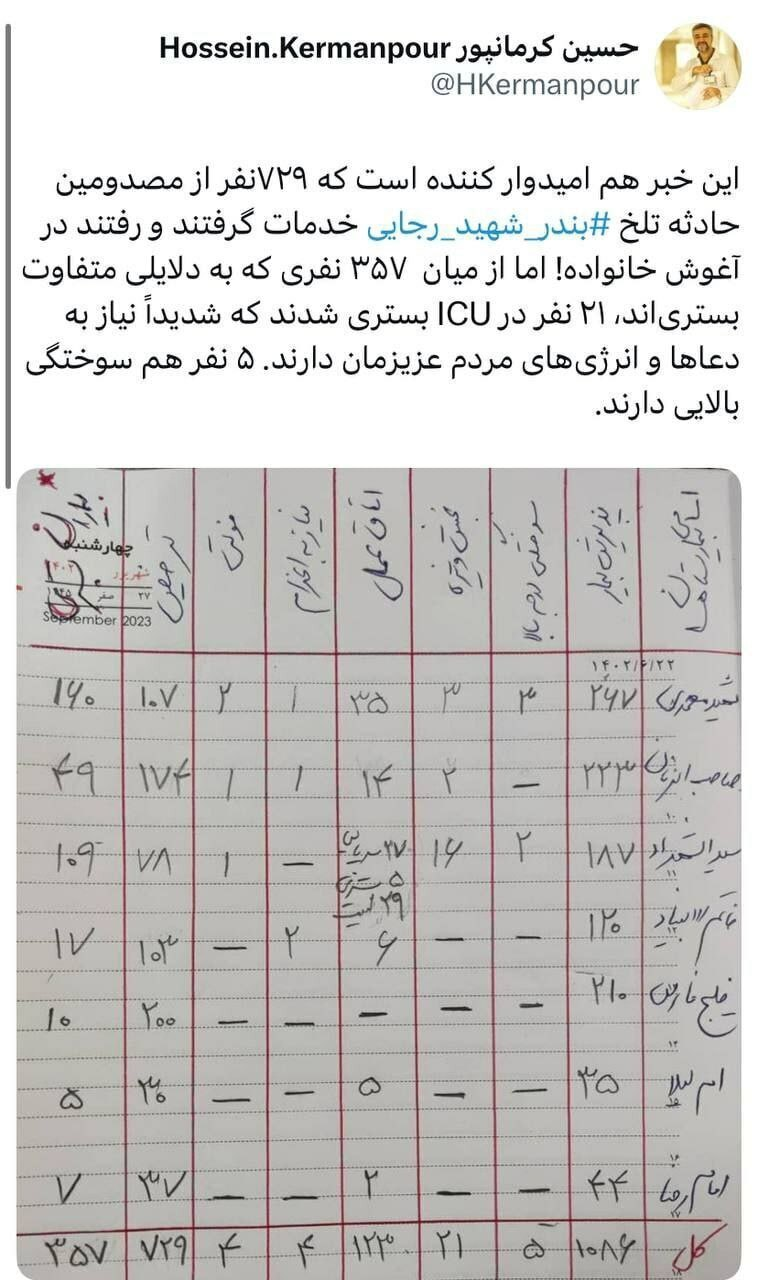 حسین کرمانپور Hossein.Kermanpour
@HKermanpour
این خبر هم امیدوار کننده است که ۷۲۹نفر از مصدومین
حادثه تلخ #بندر_شهید_رجایی خدمات گرفتند و رفتند در
آغوش خانواده! اما از میان ۳۵۷ نفری که به دلایلی متفاوت
بستری‌اند، ۲۱ نفر در ICU بستری شدند که شدیداً نیاز به
دعاها و انرژی‌های مردم عزیزمان دارند. ۵ نفر هم سوختگی
بالایی دارند.
اسامی بیمارستان‌ها پذیرش بیمار سوختگی درجه بالا بخش ویژه اتاق عمل نیاز به اعزام فوتی ترخیص
چهارشنبه
شهریور ۱۴۰۲
۲۷ صفر ۱۴۴۵
September 2023
۱۴۰۲/۶/۲۲
شهید محمدی ۲۶۷ ۳ ۳ ۳۵ ۱ ۲ ۱۰۷ ۱۶۰
صاحب الزمان ۲۲۳ — ۲ ۱۴ ۱ ۱ ۱۷۴ ۴۹
سید الشهداء ۱۸۷ ۲ ۱۶ ۲۷ — ۱ ۷۸ ۱۰۹
۵ ۲۹
خاتم الانبیاء ۱۲۰ — — ۶ ۲ — ۱۰۳ ۱۷
خلیج فارس ۲۱۰ — — — — — ۲۰۰ ۱۰
ام لیلا ۳۵ — — ۵ — — ۳۰ ۵
امام رضا ۴۴ — — ۲ — — ۳۷ ۷
کل ۱۰۸۶ ۵ ۲۱ ۱۲۳ ۴ ۴ ۷۲۹ ۳۵۷